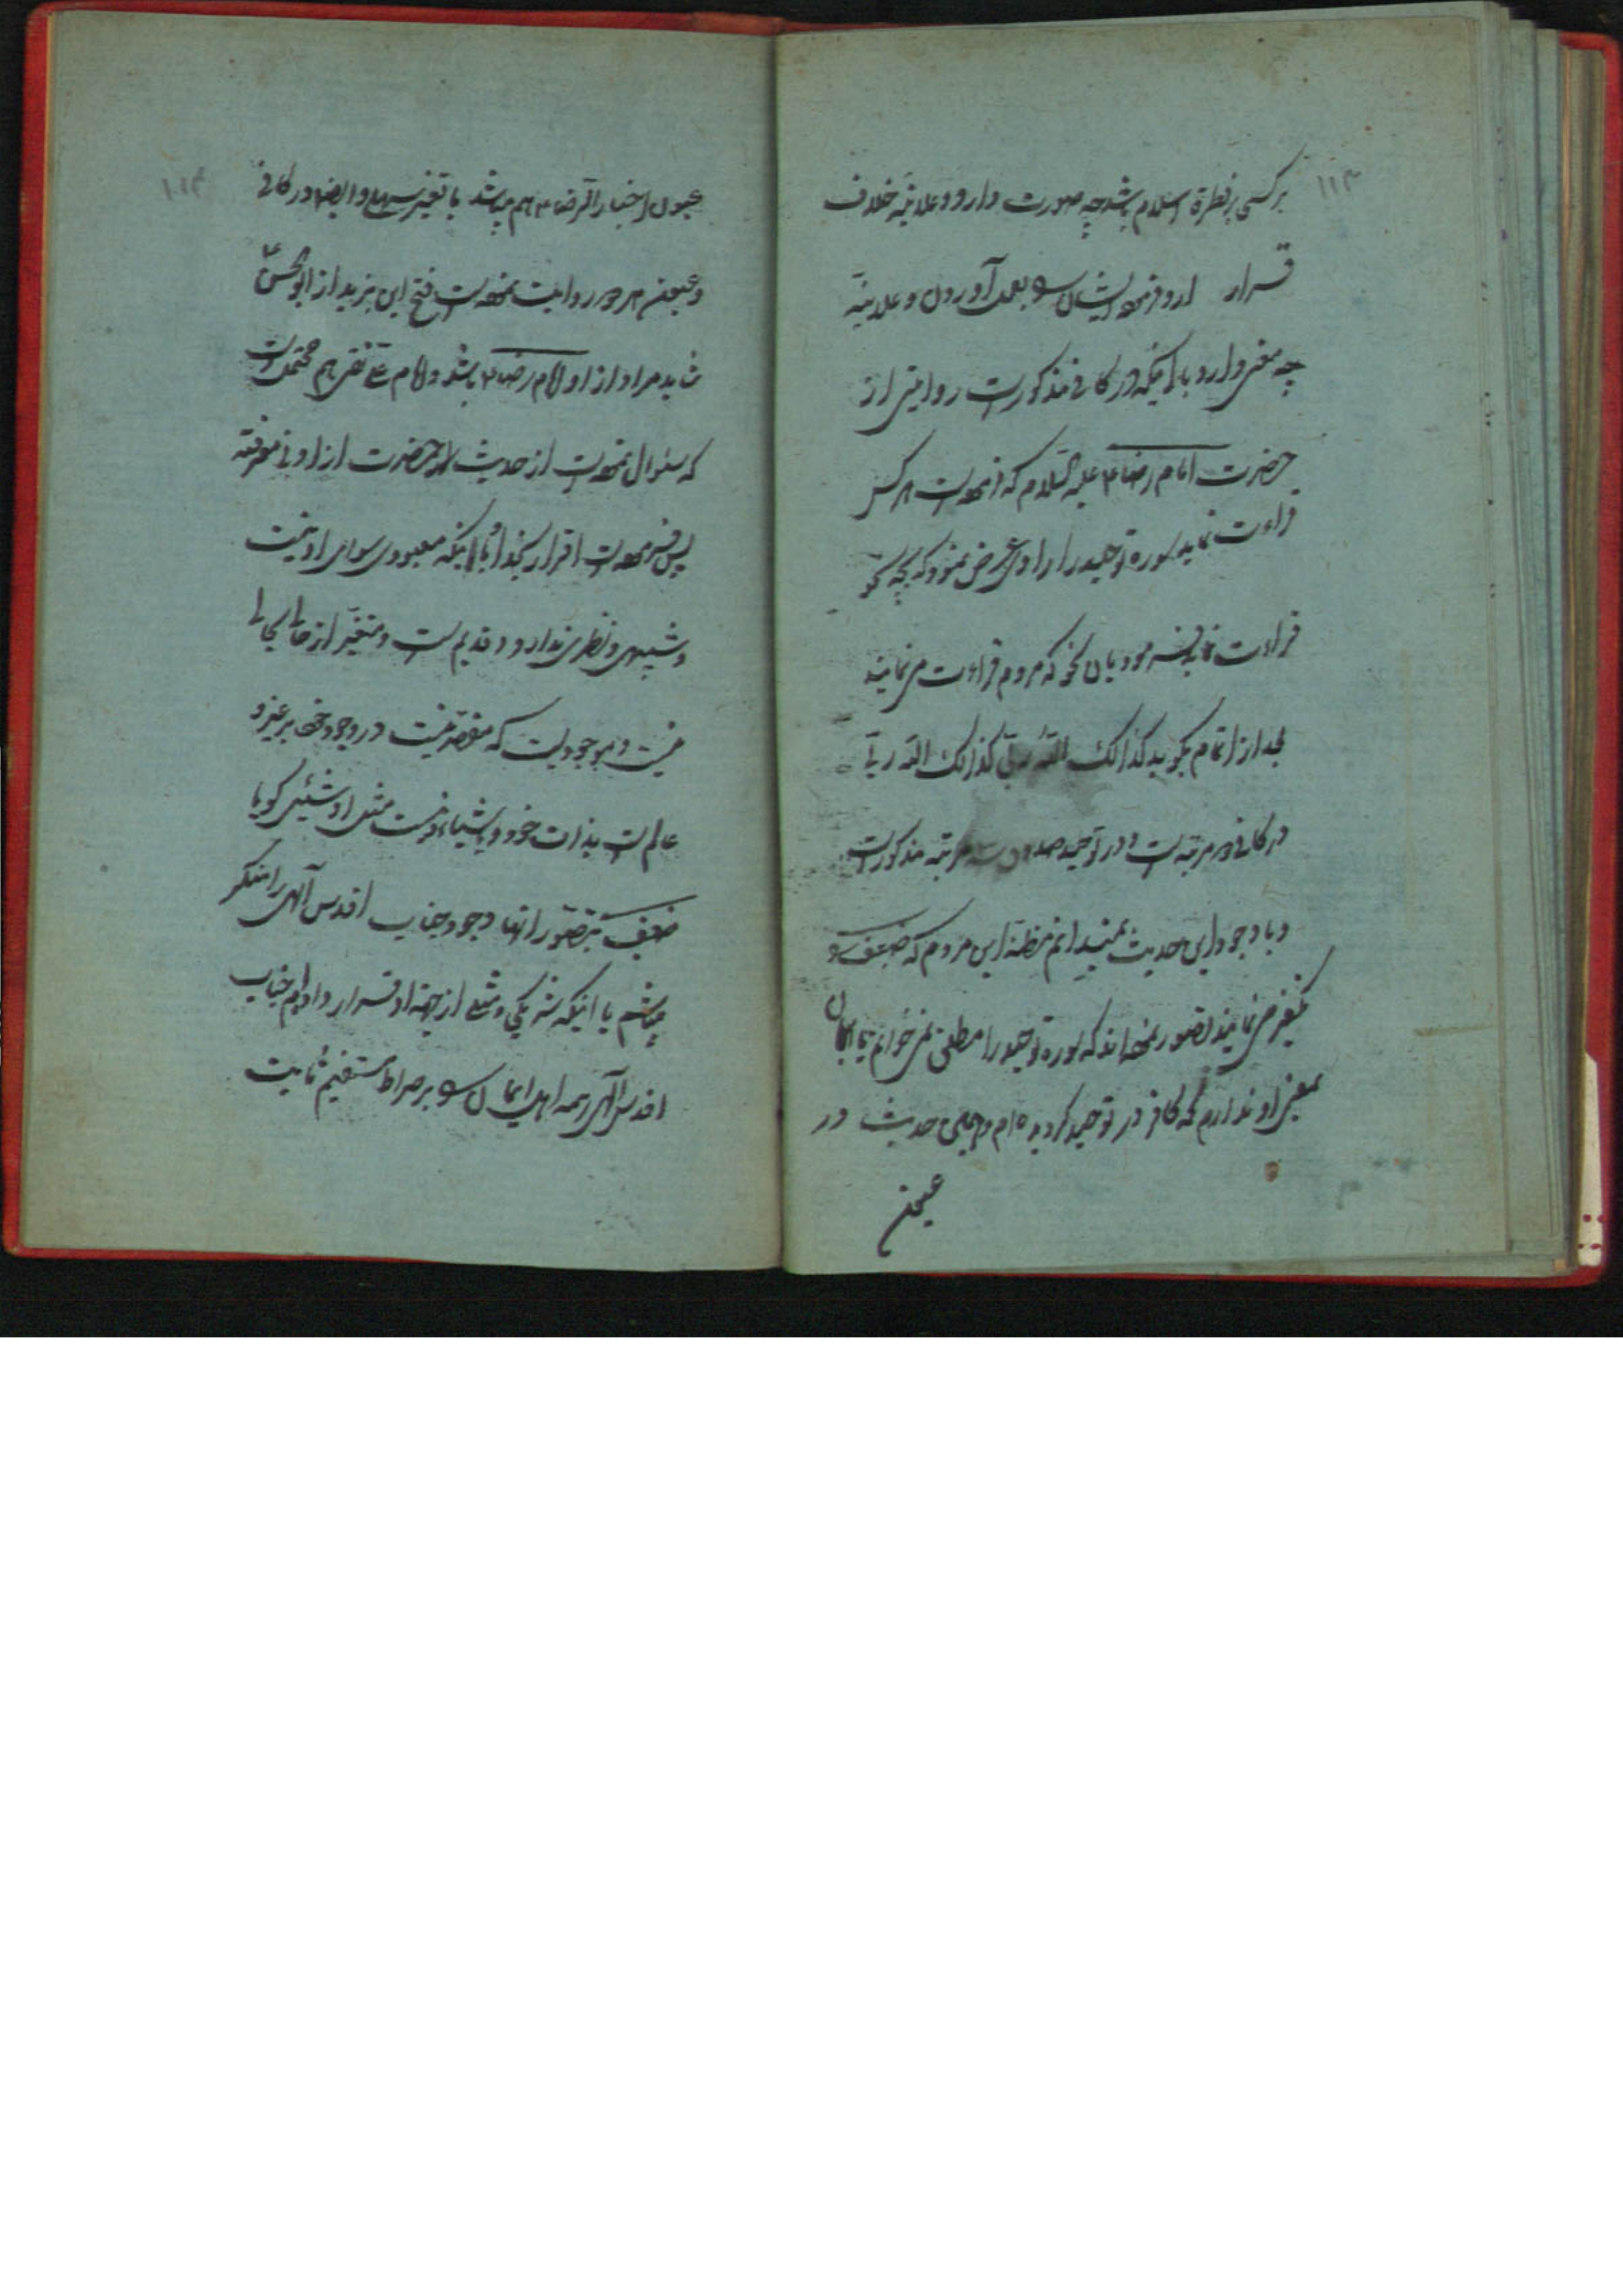 ۱۱۳
هر کسی بر فطرة اسلام باشد چه صورت دارد و علانیه خلاف
قرار او و فرموده ایشان بعمل آوردن و علانیة
چه معنی دارد با اینکه در کافی مذکور است روایتی از
حضرت امام رضا علیه السلام که فرموده است هر کس
قراءت نماید سوره توحید را راوی عرض نمود که بچه نحو
قراءت نماید فرمود بآن نحو که مردم قراءت می نمایند
بعد از اتمام بگوید کذالک الله ربی کذالک الله ربی
در کافی دو مرتبه است و در توحید صدوق سه مرتبه مذکور است
و با وجود این حدیث نمیدانم مظنه این مردم که ضعیف
تکفیر می نمایند تصور نموده اند که سوره توحید را مطلق نمی خوانم یا ایمان
بمعنی او ندارم که کافر در توحید گردیده ام و همین حدیث در
عیون
۱۱۴
عیون اخبار الرضا هم میباشد با تغیر سهل و ایضا در کافی
و عیون هر دو روایت نموده است فتح ابن یزید از ابو الحسن ع
شاید مراد از او امام رضا باشد و امام علی نقی هم محتمل است
که سئوال نموده است از حدیث آنحضرت از ادنی معرفته
پس فرموده است اقرار بخدا باینکه معبودی سوای او نیست
و شبیهی و نظری ندارد و قدیم است و متغیر از حالی بحالی
نیست و موجود است که مفقود نیست در وجود خود
عالم است بذات خود و باشیاء و نیست مثل او شیئی گویا
ضعیف بتصور آنها وجود جناب اقدس آلهی را منکر
میباشم یا اینکه شریکی و مثلی از جهة او قرار داده ام جناب
اقدس آلهی همه اهل ایمان بر صراط مستقیم ثابت